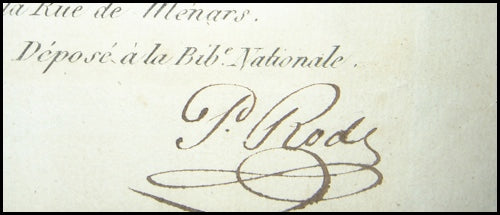 la Rue de Ménars.
Déposé à la Bib.e Nationale.
P.d Rode